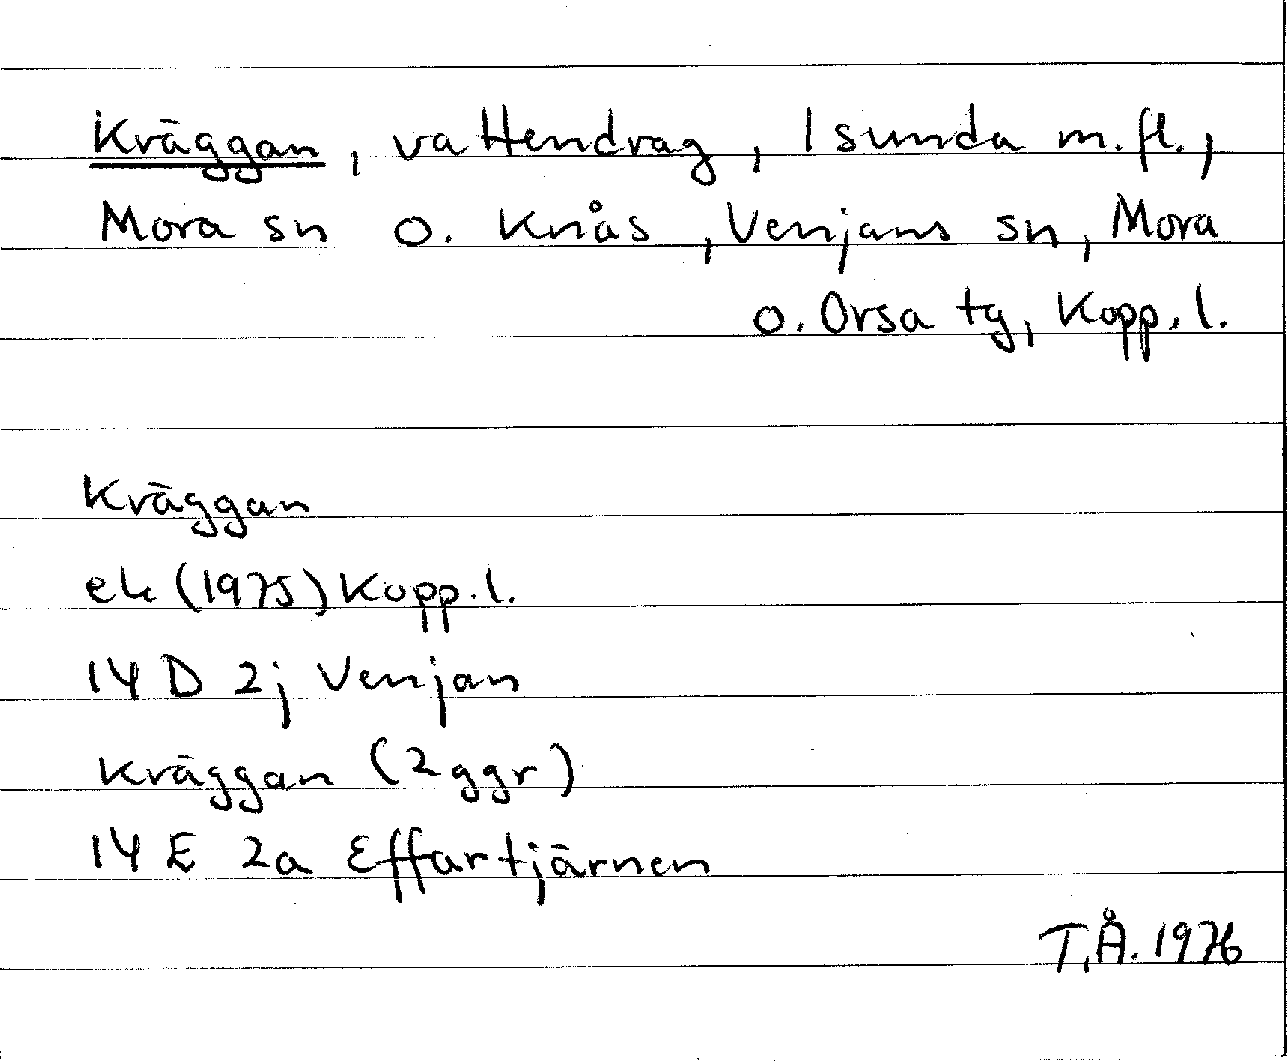 Kräggan, vattendrag, Isunda m.fl.,
Mora sn o. Knås, Venjans sn, Mora
o. Orsa tg, Kopp.l.
Kräggan
ek (1975) Kopp.l.
14 D 2j Venjan
Kräggan (2 ggr)
14 E 2a Effartjärnen
T.Å. 1976